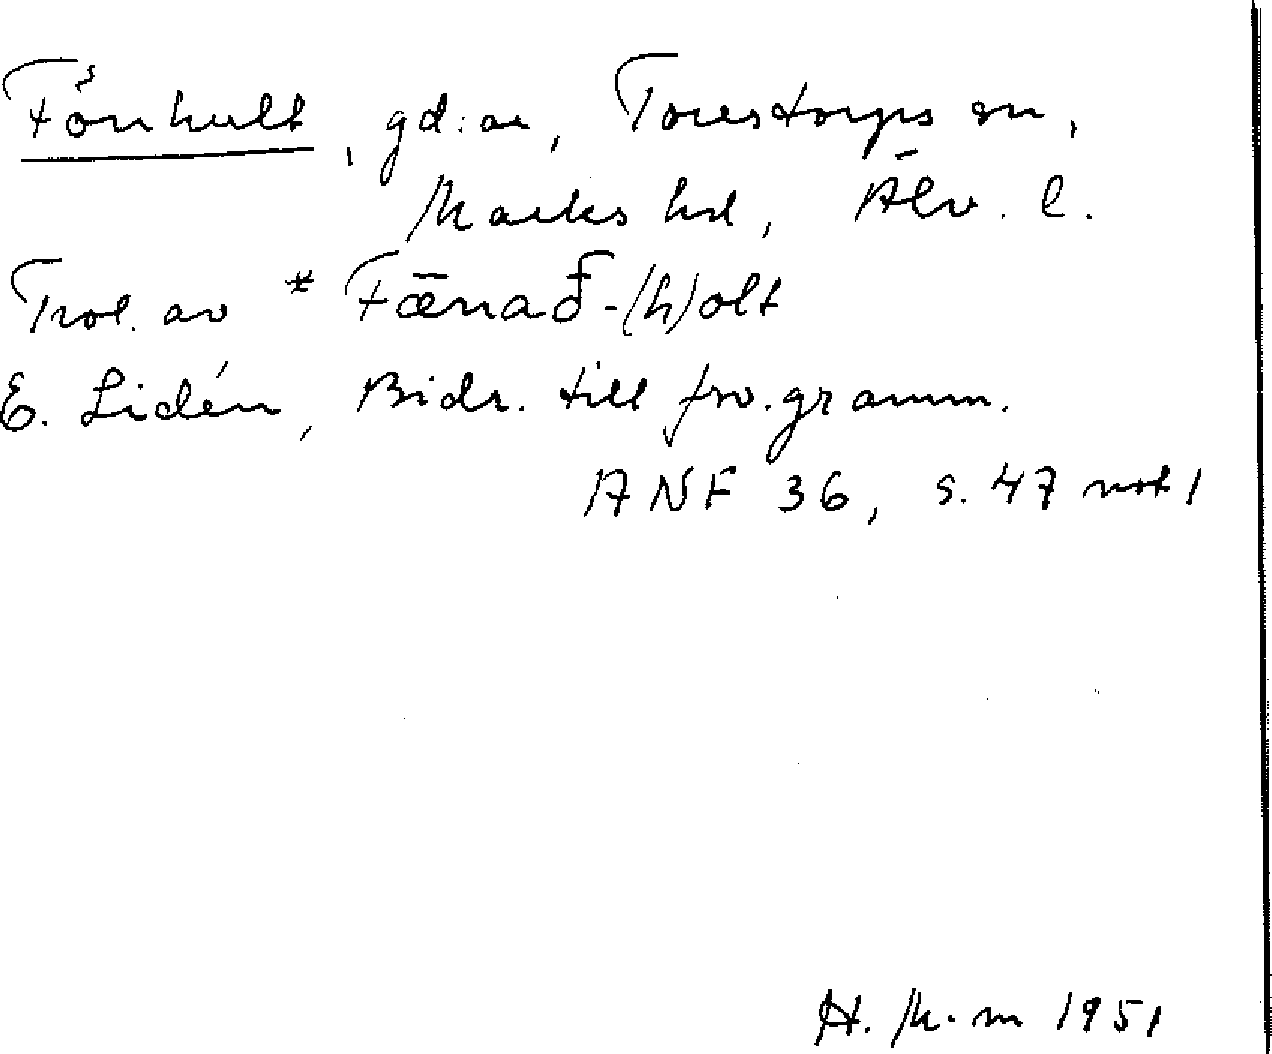 Fönhult, gd:ar, Torestorps sn,
Marks hd, Älv. l.
Trol. av *Fǣnað-(h)olt
E. Lidén, Bidr. till fno.gramm.
ANF 36, s. 47 not 1
H. M-m 1951